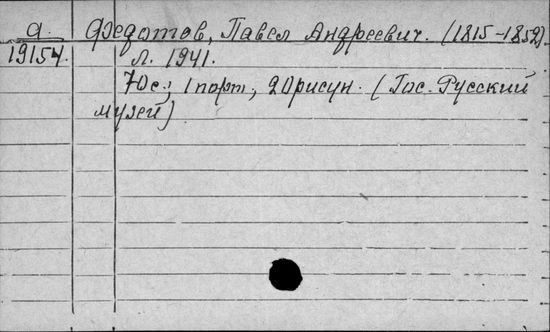 д. Федотов, Павел Андреевич. (1815-1852)
19154. Л. 1941.
70с.; 1 порт., 20 рисун. (Гос. Русский
музей)